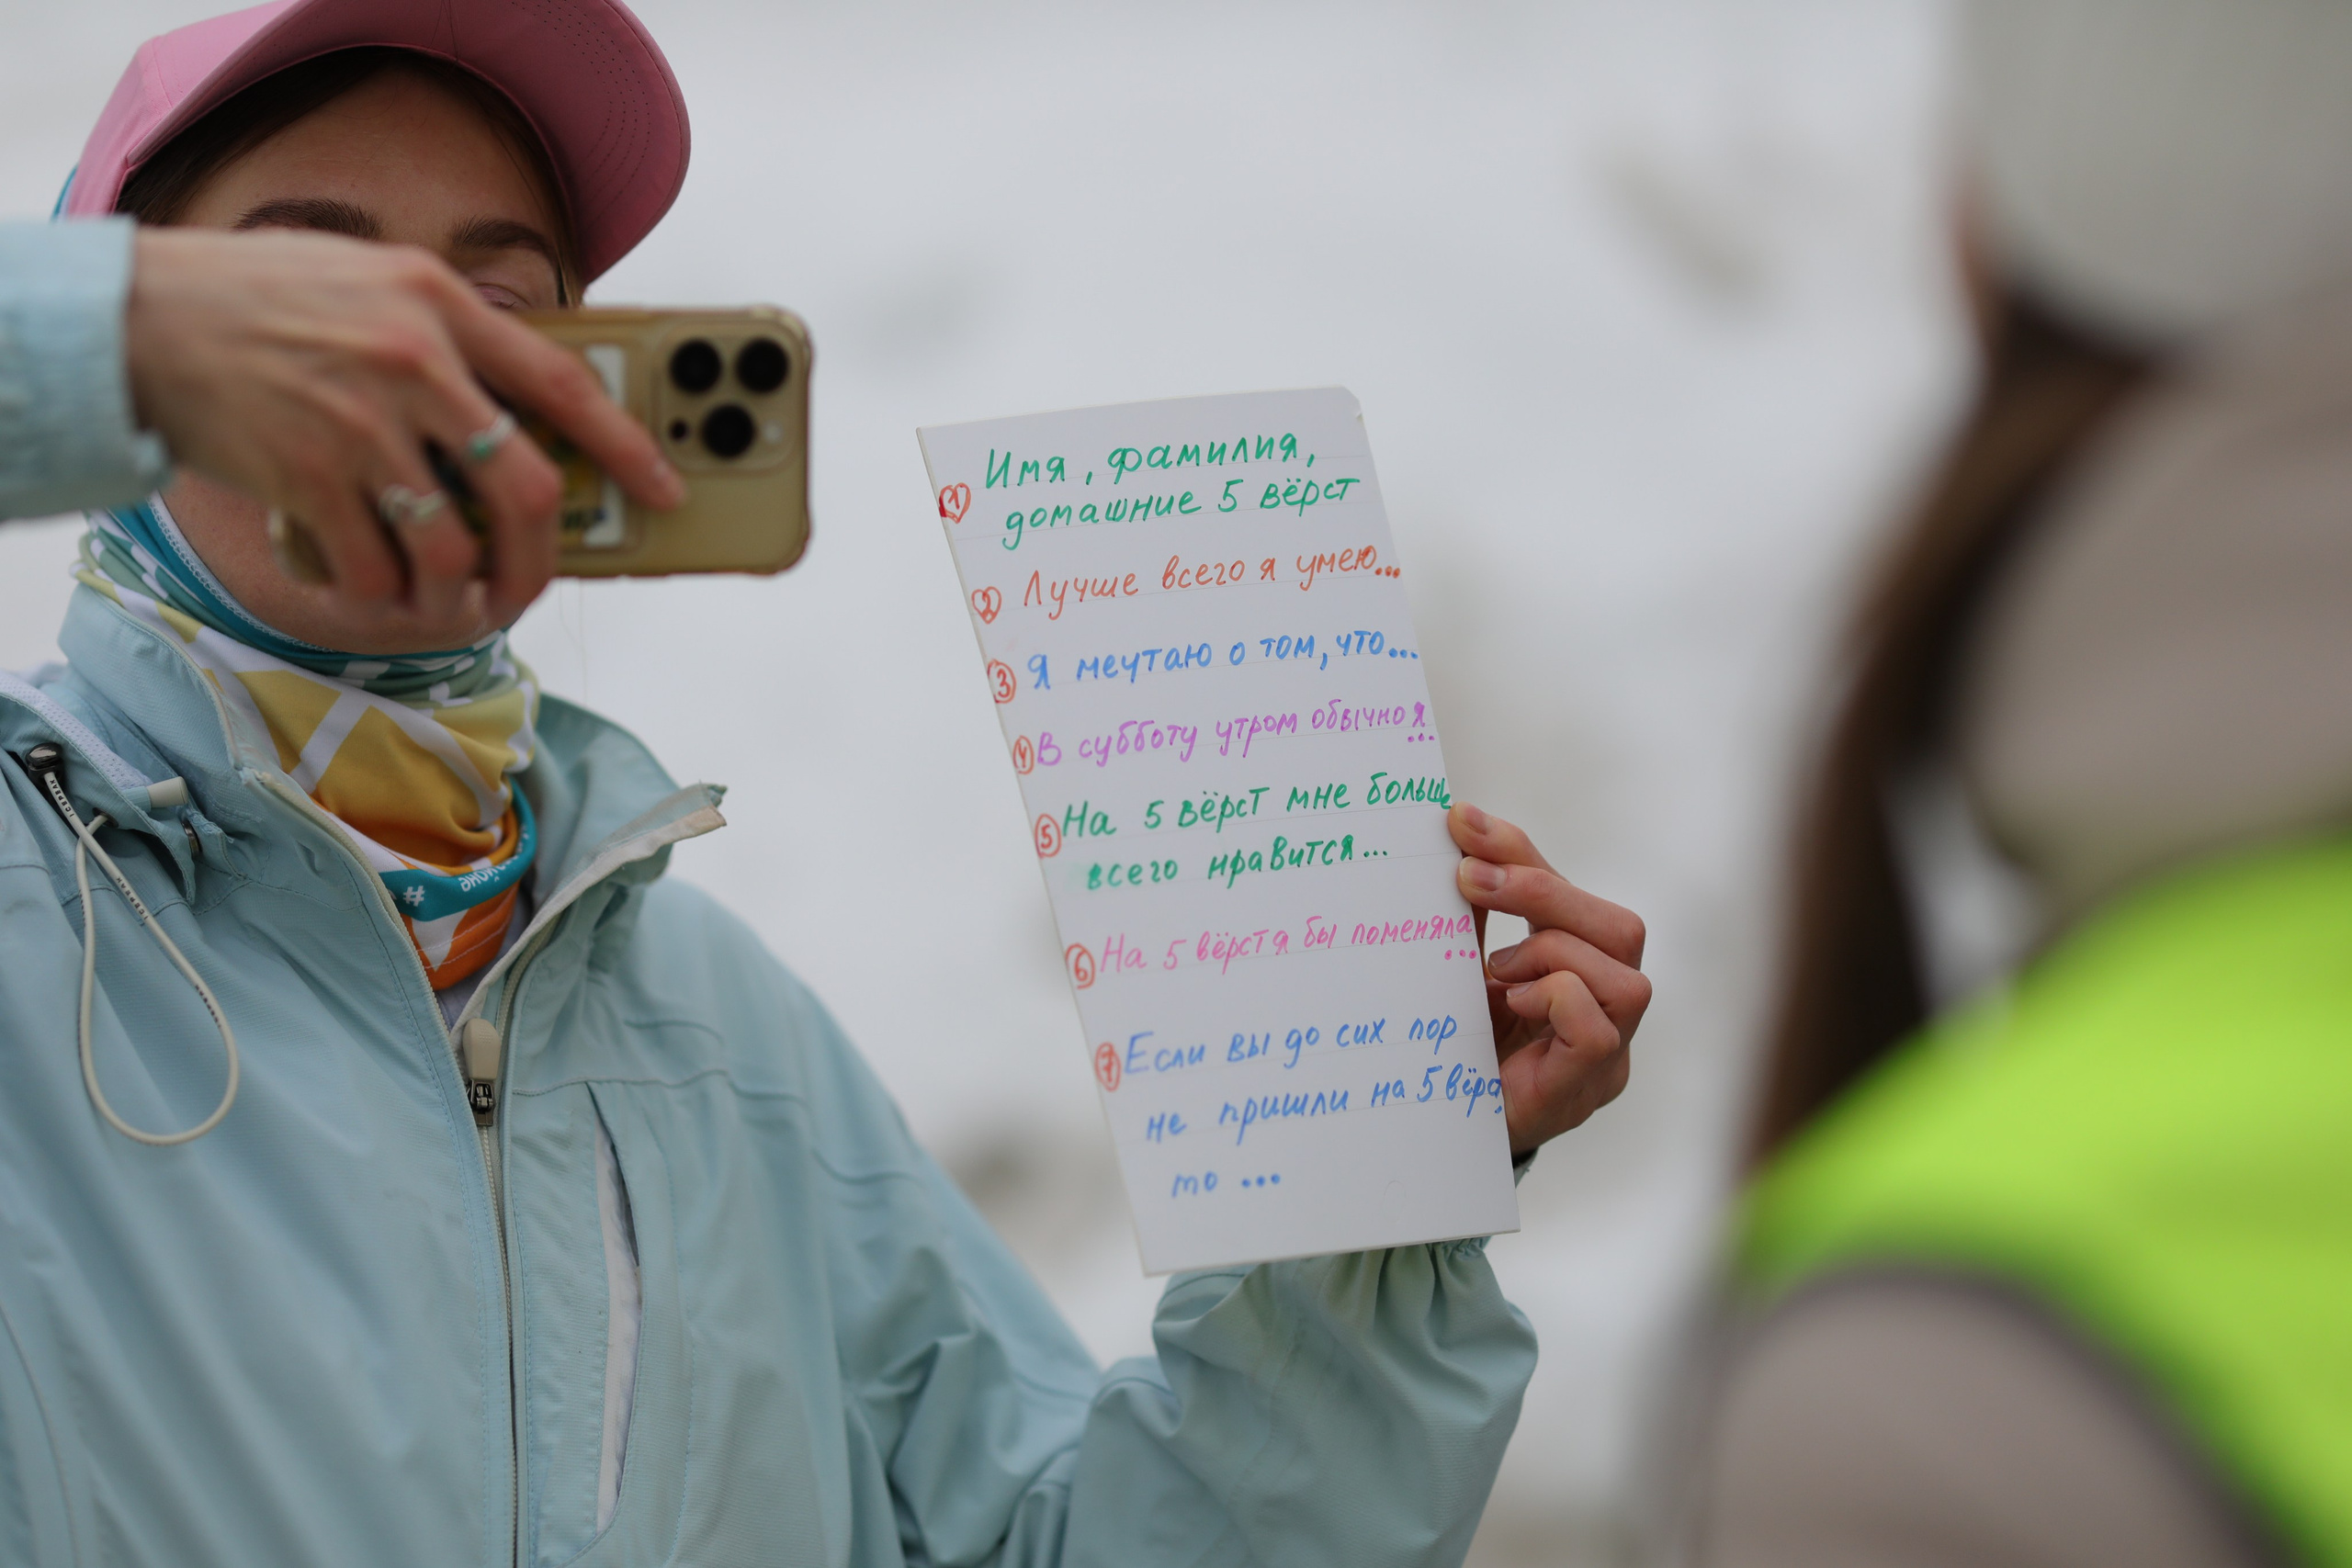 1 Имя, фамилия,
домашние 5 вёрст
2 Лучше всего я умею...
3 Я мечтаю о том, что...
4 В субботу утром обычно я
...
5 На 5 вёрст мне больше
всего нравится...
6 На 5 вёрст я бы поменяла
...
7 Если вы до сих пор
не пришли на 5 вёрст,
то ...
#